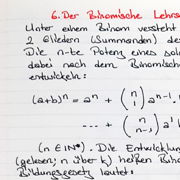 6. Der Binomische Lehrs
Unter einem Binom versteht
2 Gliedern (Summanden) des
Die n-te Potenz eines sol
dabei nach dem Binomische
entwickeln:
(a+b)ⁿ = aⁿ + (n 1) aⁿ⁻¹·
... + (n n-1) a¹
(n ∈ ℕ*). Die Entwicklung
(gelesen: n über k) heißen Bino
Bildungsgesetz lautet: